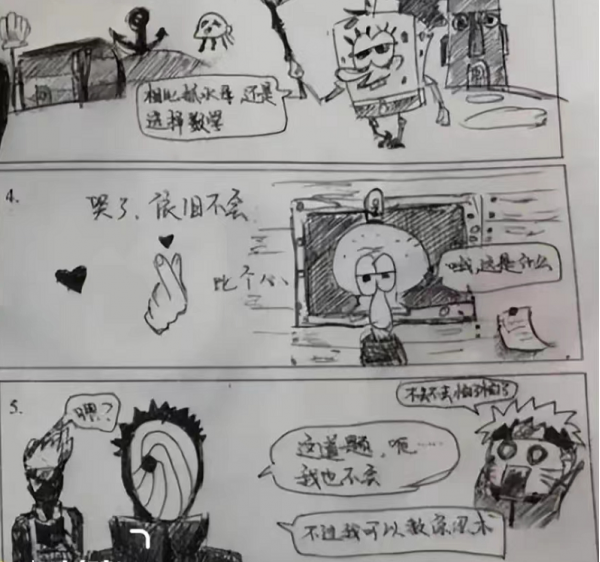 相比抓水母 还是
选择数学
4.
哭了,依旧不会
比个心
哦,这是什么
5.
嘿?
不知不去怕了怕了
这道题,呃……
我也不会
不过我可以教你忍术